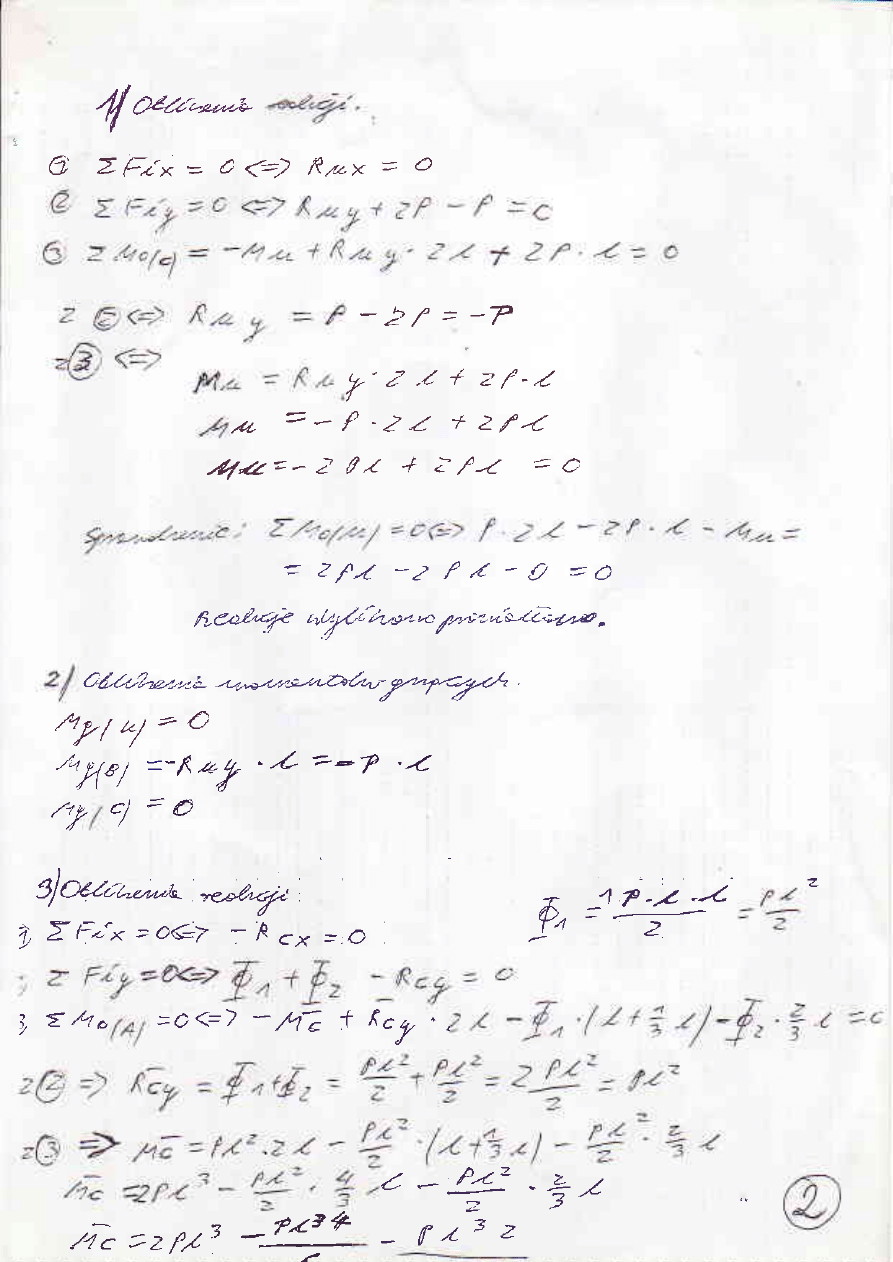 1) Obliczenia reakcji.
① ΣFix = 0 <=> Rux = 0
② ΣFiy = 0 <=> Ruy + 2P - P = 0
③ ΣMo(c) = -Mu + Ruy · 2l + 2P · l = 0
z ② <=> Ruy = P - 2P = -P
z ③ <=>
Mu = Ruy · 2l + 2P · l
Mu = -P · 2l + 2Pl
Mu = -2Pl + 2Pl = 0
Sprawdzenie: ΣMo(u) = 0 <=> P · 2l - 2P · l - Mu =
= 2Pl - 2Pl - 0 = 0
Reakcje wyliczono prawidłowo.
2) Obliczenia momentów gnących.
Mg(u) = 0
Mg(B) = -Ruy · l = -P · l
Mg(C) = 0
3) Obliczenia reakcji:
Φ₁ = 1P·l·l/2 = Pl²/2
1) ΣFix = 0 <=> -Rcx = 0
; ΣFiy = 0 <=> Φ₁ + Φ₂ - R̄cy = 0
3) ΣMo(A) = 0 <=> -M̄c + R̄cy · 2l - Φ₁ · (l + 1/3 l) - Φ₂ · 2/3 l = 0
z ② => R̄cy = Φ₁ + Φ₂ = Pl²/2 + Pl²/2 = 2Pl²/2 = Pl²
z ③ => M̄c = Pl² · 2l - Pl²/2 · (l + 1/3 l) - Pl²/2 · 2/3 l
M̄c = 2Pl³ - Pl²/2 · 4/3 l - Pl²/2 · 2/3 l
M̄c = 2Pl³ - Pl³4 - Pl³2
②